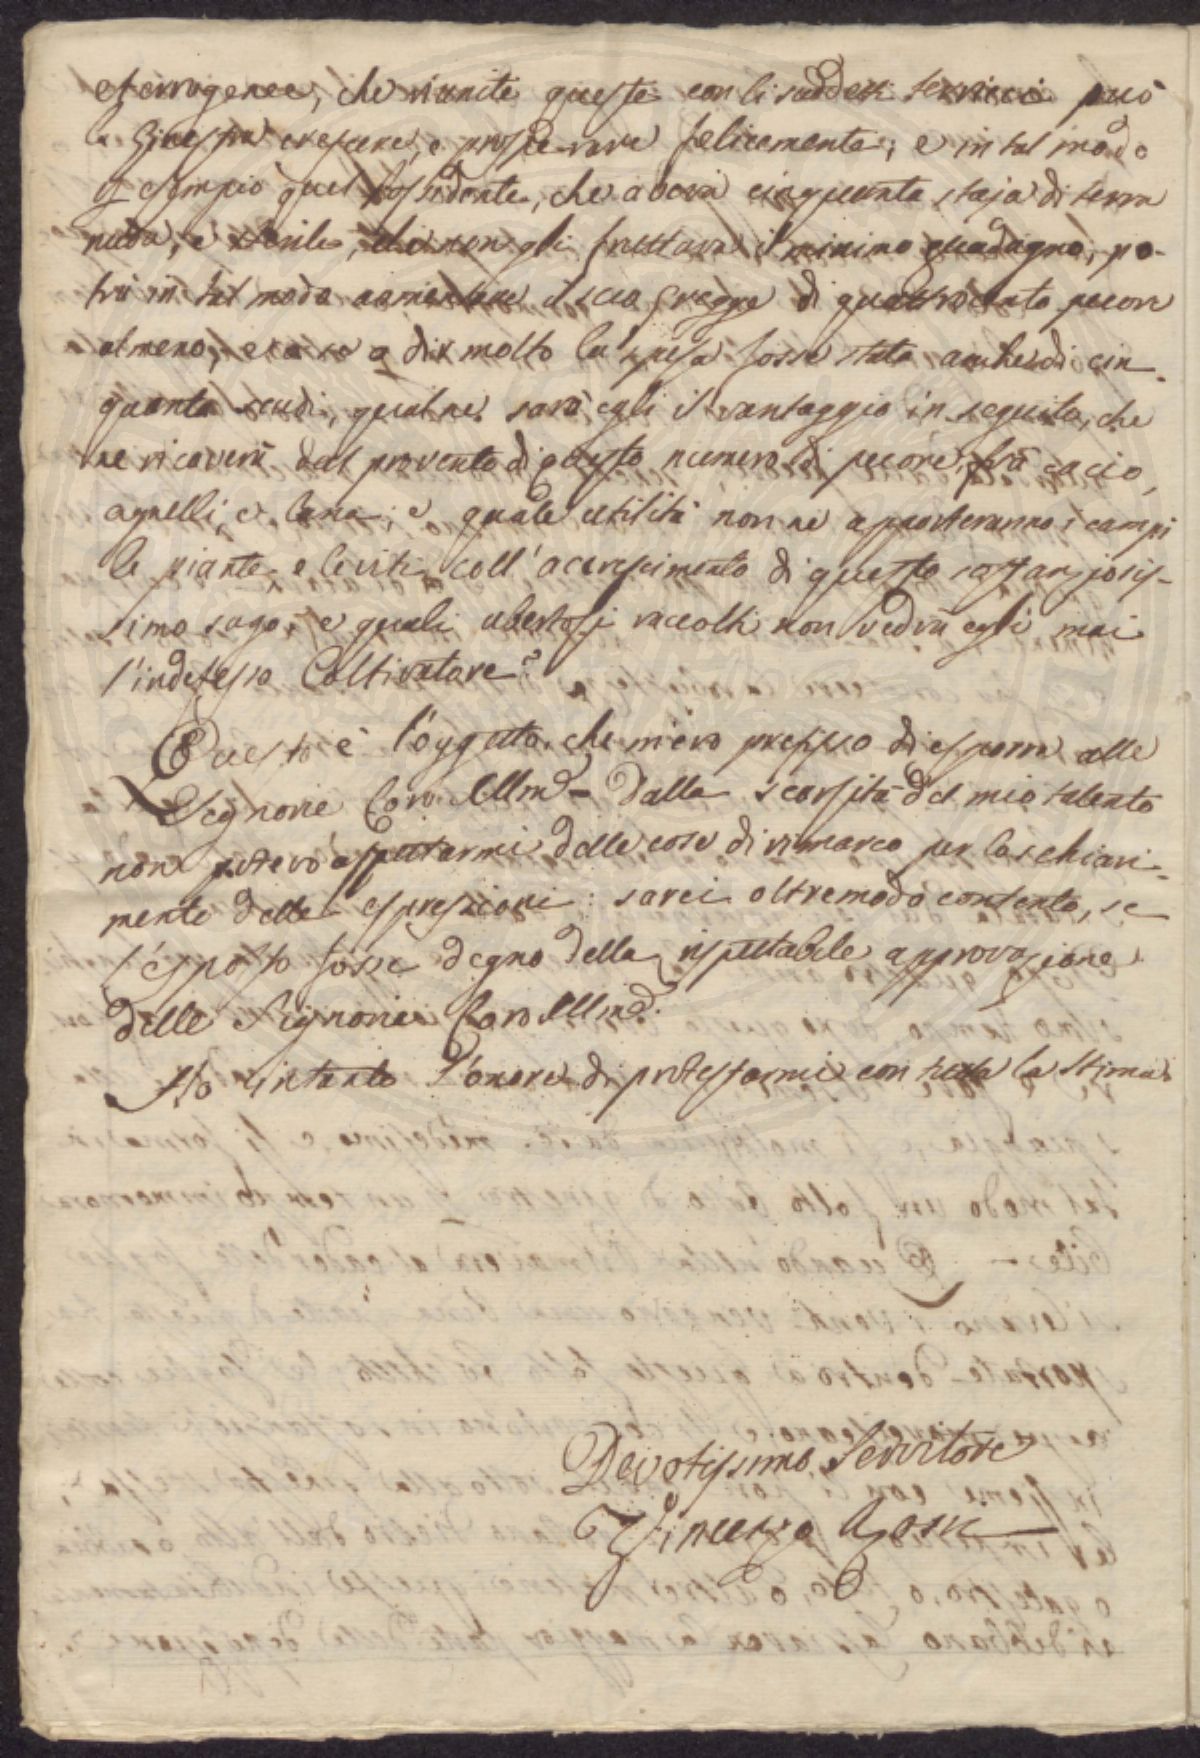 eterrogenee, che riunite queste con li suddetti terricci può
la Ginestra crescere, e prosperare felicemente; e in tal modo
p esempio quel Possidente, che aveva cinquanta staja di terra
nuda, e sterile, che non gli fruttava il minimo guadagno, po-
trà in tal modo aumentare il suo gregge di quattrocento pecore
almeno, e a dir molto la spesa fosse stata anche di cin-
quanta scudi, qual ne sarà egli il vantaggio in seguito, che
ne ricaverà dal provento di questo numero di pecore, fra cacio,
agnelli, e lana; e quale utilità non ne apporteranno i campi
le piante, e le viti coll'accrescimento di questo
simo sugo, e quali ubertosi raccolti non vedrà egli mai
l'indefesso Coltivatore?
Questo è l'oggetto, che m'ero prefisso di esporre alle
Signorie Loro Illme - Dalla scarsità del mio talento
non potevo aspettarmi delle cose di rimarco per lo schiari-
mento delle espressioni: sarei oltremodo contento, se
l'esposto fosse degno della rispettabile approvazione
delle Signorie Loro Illme.
Ho intanto l'onore di protestarmi con tutta la stima
Devotissimo Servitore
Vincenzo